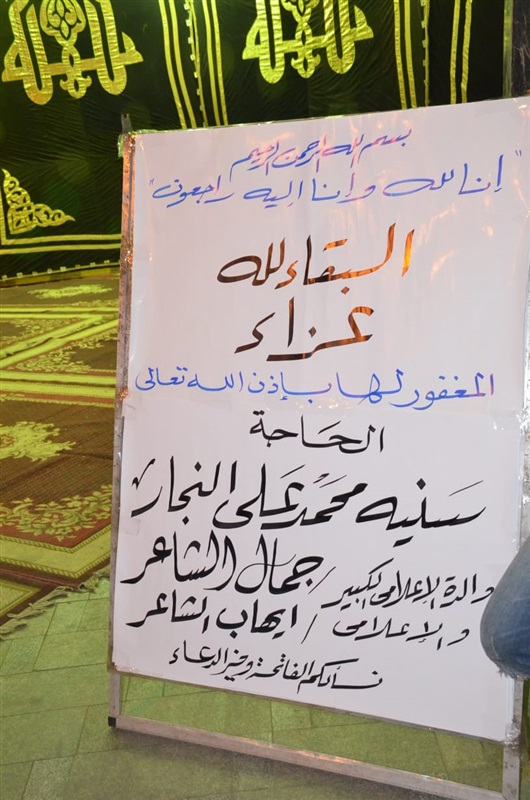 بسم الله الرحمن الرحيم
"إنا لله وإنا إليه راجعون"
البقاء لله
عزاء
المغفور لها بإذن الله تعالى
الحاجة
سنيه محمد على النجار
والدة الإعلامى الكبير / جمال الشاعر
والإعلامى / ايهاب الشاعر
نسألكم الفاتحة وخير الدعاء